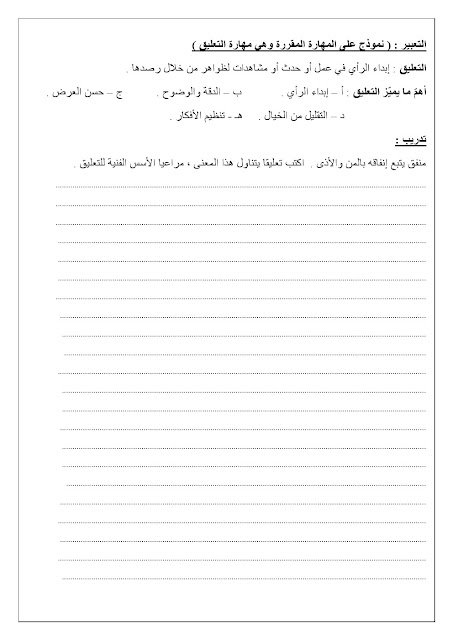 التعبير : ( نموذج على المهارة المقررة وهي مهارة التعليق )
التعليق : إبداء الرأي في عمل أو حدث أو مشاهدات لظواهر من خلال رصدها .
أهمّ ما يميّز التعليق : أ – إبداء الرأي . ب – الدقة والوضوح . ج – حسن العرض .
د – التقليل من الخيال . هـ - تنظيم الأفكار .
تدريب :
منفق يتبع إنفاقه بالمن والأذى . اكتب تعليقا يتناول هذا المعنى ، مراعيا الأسس الفنية للتعليق .